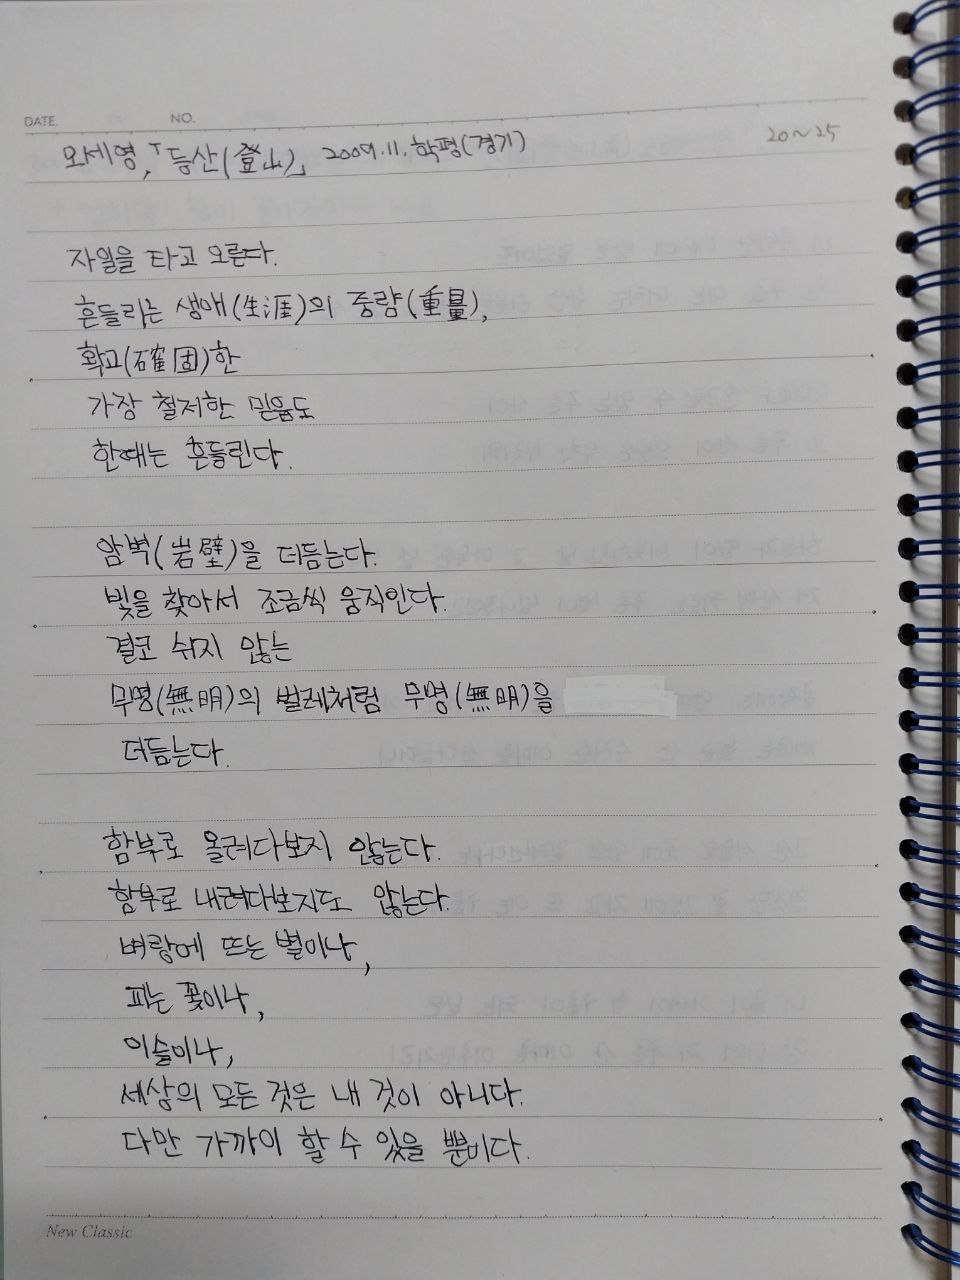 DATE. NO.
오세영, 「등산(登山)」, 2009.11. 학평(경기) 20~25
자일을 타고 오른다.
흔들리는 생애(生涯)의 중량(重量),
확고(確固)한
가장 철저한 믿음도
한때는 흔들린다.
암벽(岩壁)을 더듬는다.
빛을 찾아서 조금씩 움직인다.
결코 쉬지 않는
무명(無明)의 벌레처럼 무명(無明)을
더듬는다.
함부로 올려다보지 않는다.
함부로 내려다보지도 않는다.
벼랑에 뜨는 별이나,
피는 꽃이나,
이슬이나,
세상의 모든 것은 내 것이 아니다.
다만 가까이 할 수 있을 뿐이다.
New Classic